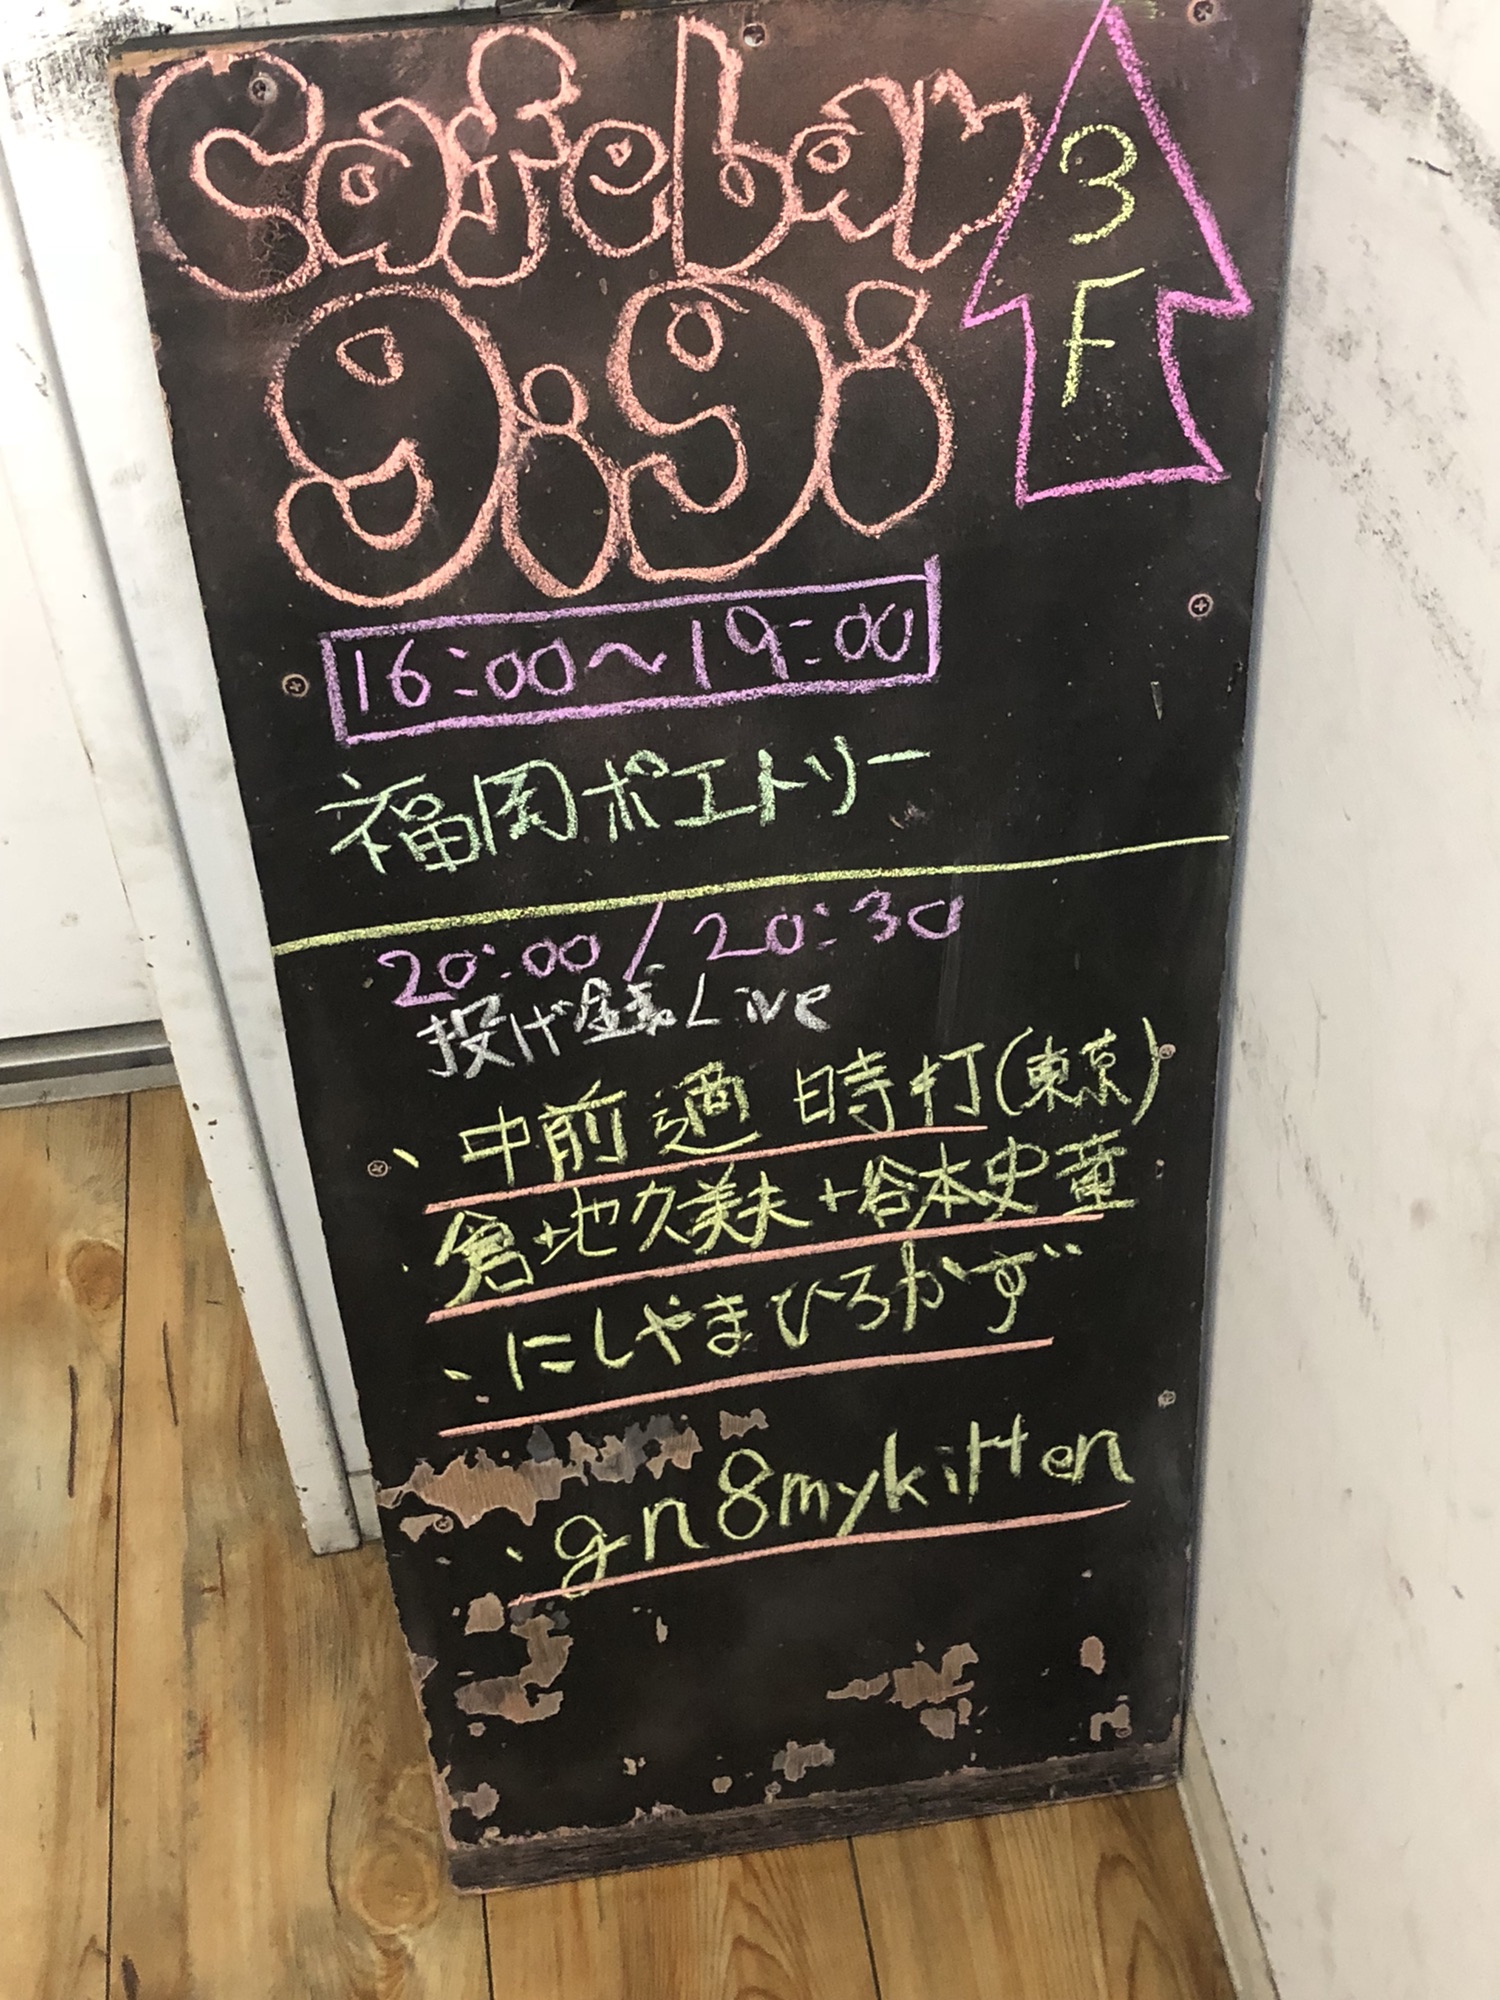 Cafebar
gigi
3F
16:00〜19:00
福岡ポエトリー
20:00/20:30
投げ銭Live
、中前適時打(東京)
・倉地久美夫+谷本史童
、にしやまひろかず
、gn8mykitten